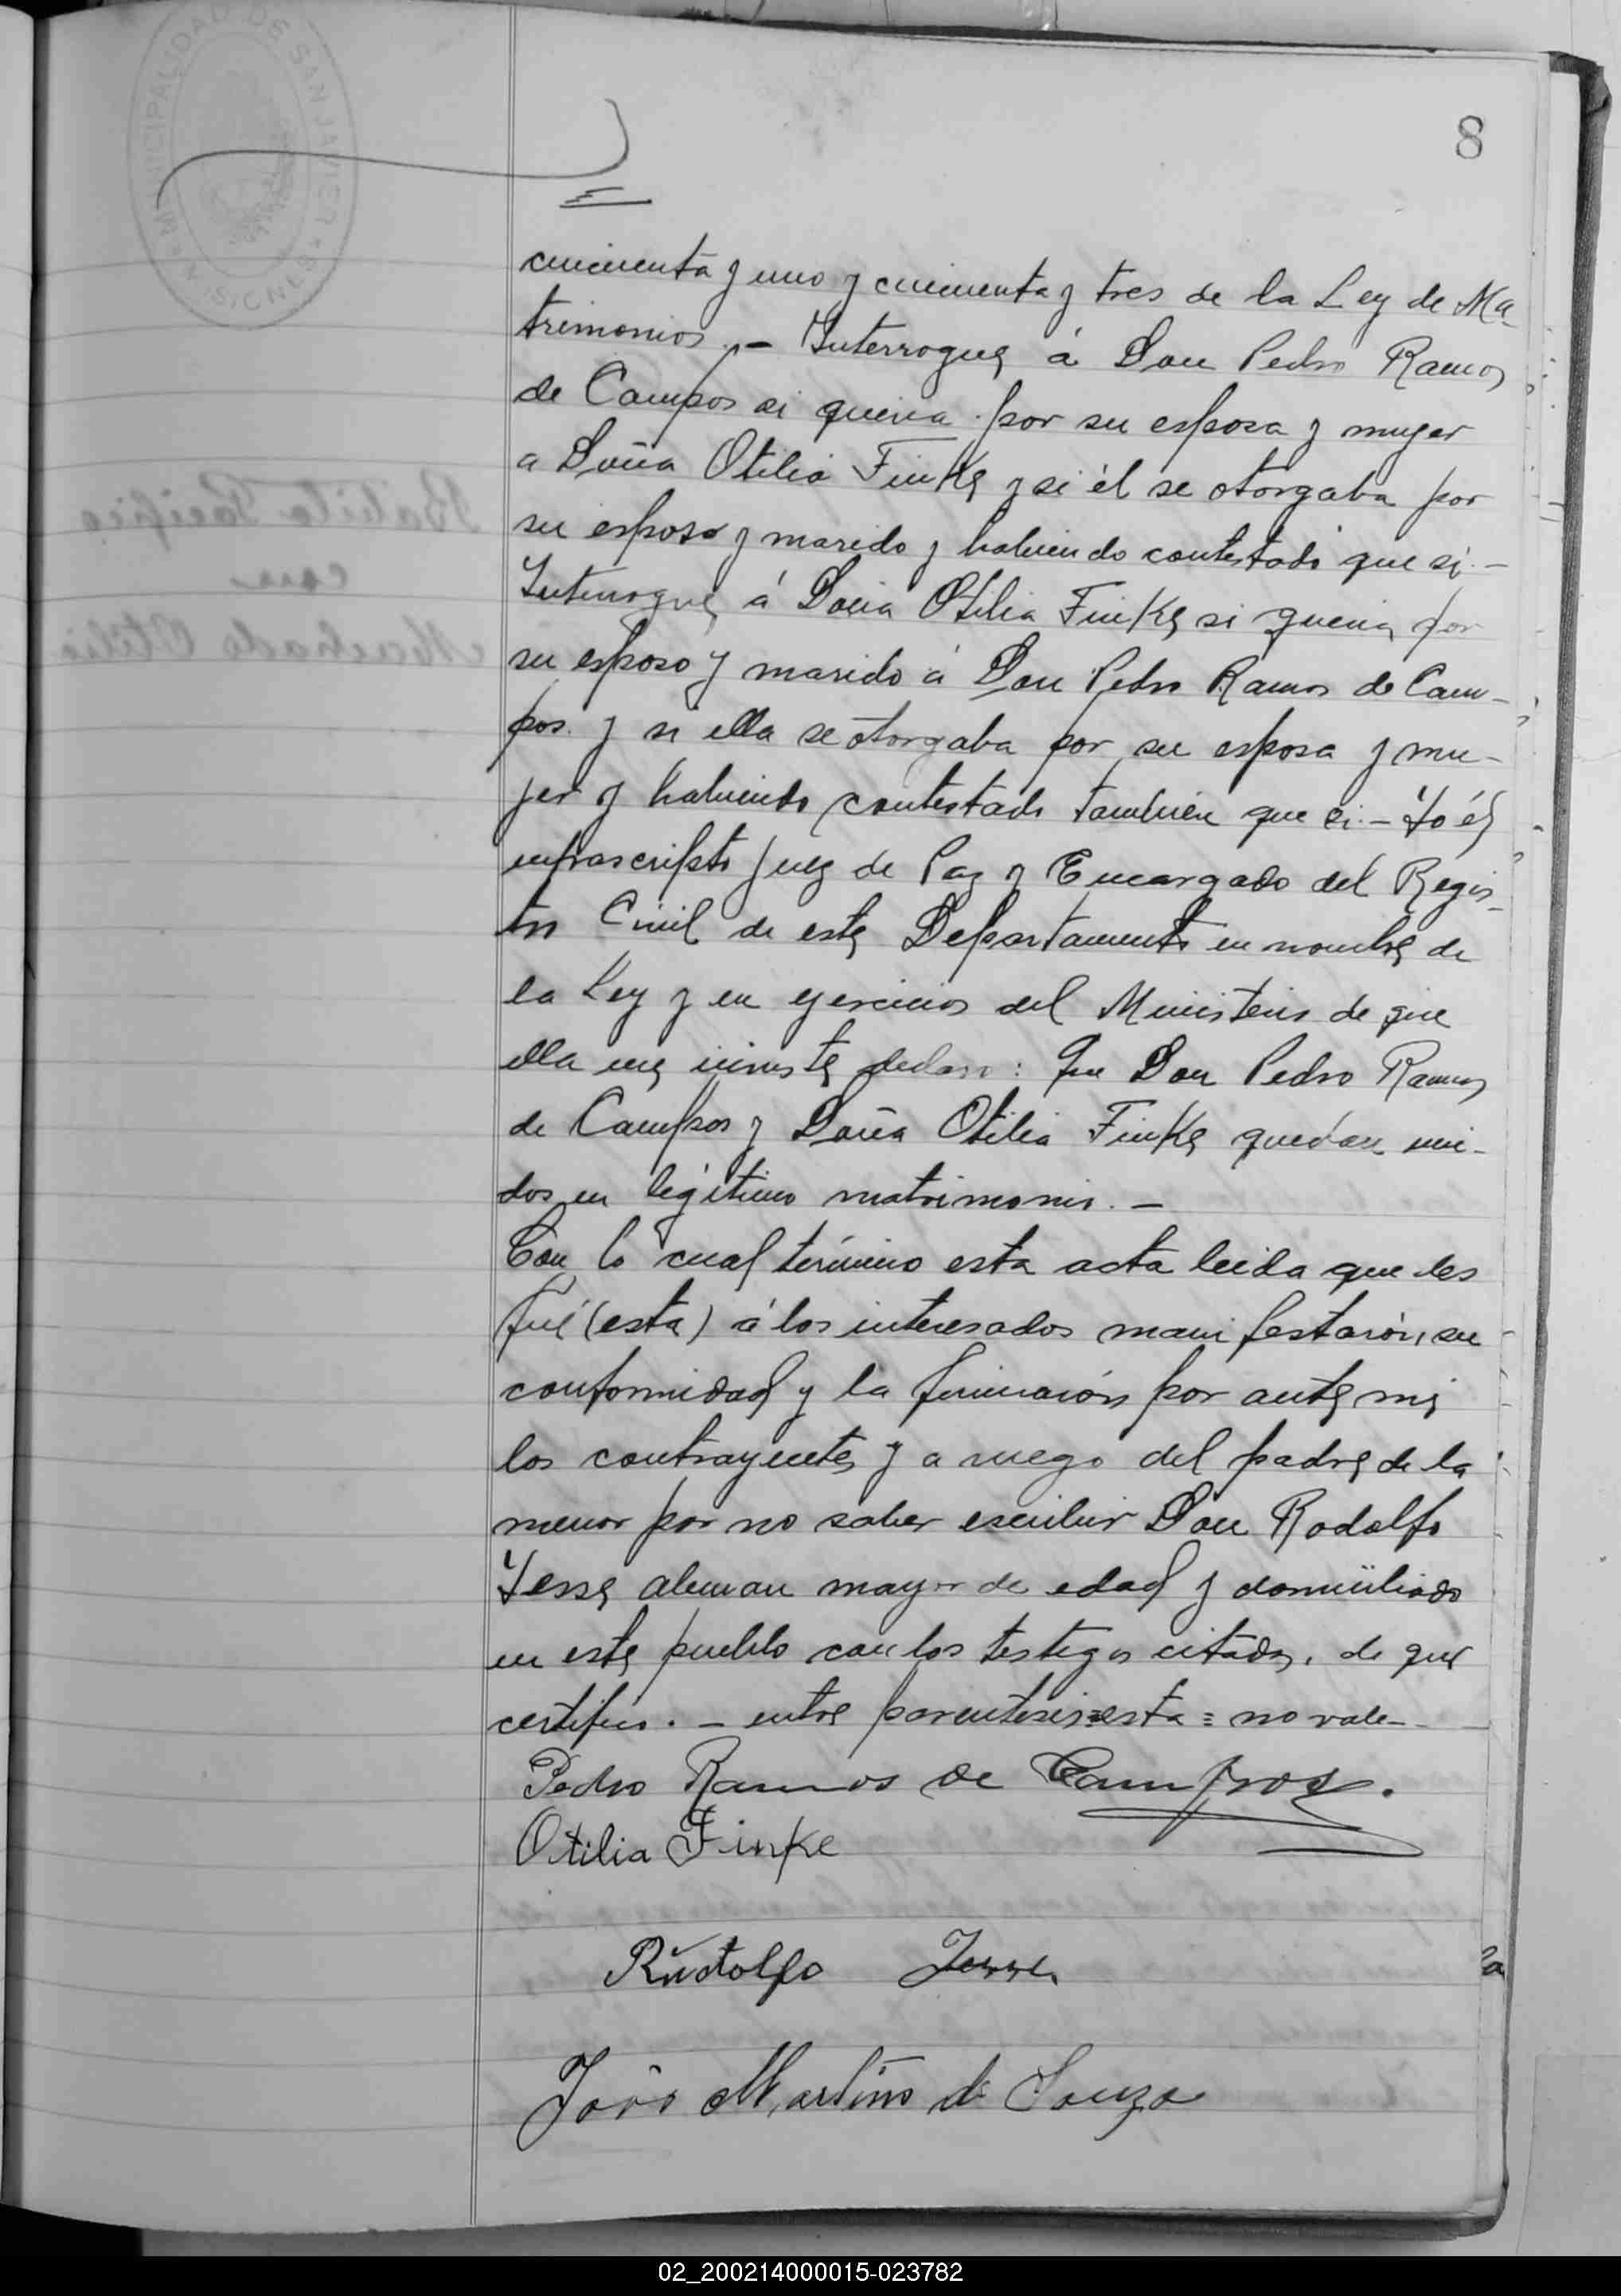 MUNICIPALIDAD DE SAN JAVIER
MISIONES
8
cincuenta y uno y cincuenta y tres de la Ley de Ma-
trimonios.- Interrogue á Don Pedro Ramos
de Campos si queria por su esposa y muger
a Doña Otilia Finke y si él se otorgaba por
su esposo y marido y habiendo contestado que si.-
Interrogue á Doña Otilia Finke si queria por
su esposo y marido á Don Pedro Ramos de Cam-
pos y si ella se otorgaba por su esposa y mu-
jer y habiendo contestado también que si.- Yo él
infrascripto Juez de Paz y Encargado del Regis-
tro Civil de este Departamento en nombre de
la Ley y en ejercicios del Ministerio de que
ella me inviste declaro: Que Don Pedro Ramos
de Campos y Doña Otilia Finke quedan uni-
dos en legítimo matrimonio.-
Con lo cual término esta acta leida que les
fué (esta) á los interesados manifestarón su
conformidad y la firmarón por ante mi
los contrayentes y a ruego del padre de la
menor por no saber escribir Don Rodolfo
Yesse aleman mayor de edad y domiciliado
en este pueblo con los testigos citados, de que
certifico.- entre parentesis=esta=no vale-
Pedro Ramos de Campos.
Otilia Finke
Rudolfo Jesse
João Martins de Souza
02_200214000015-023782